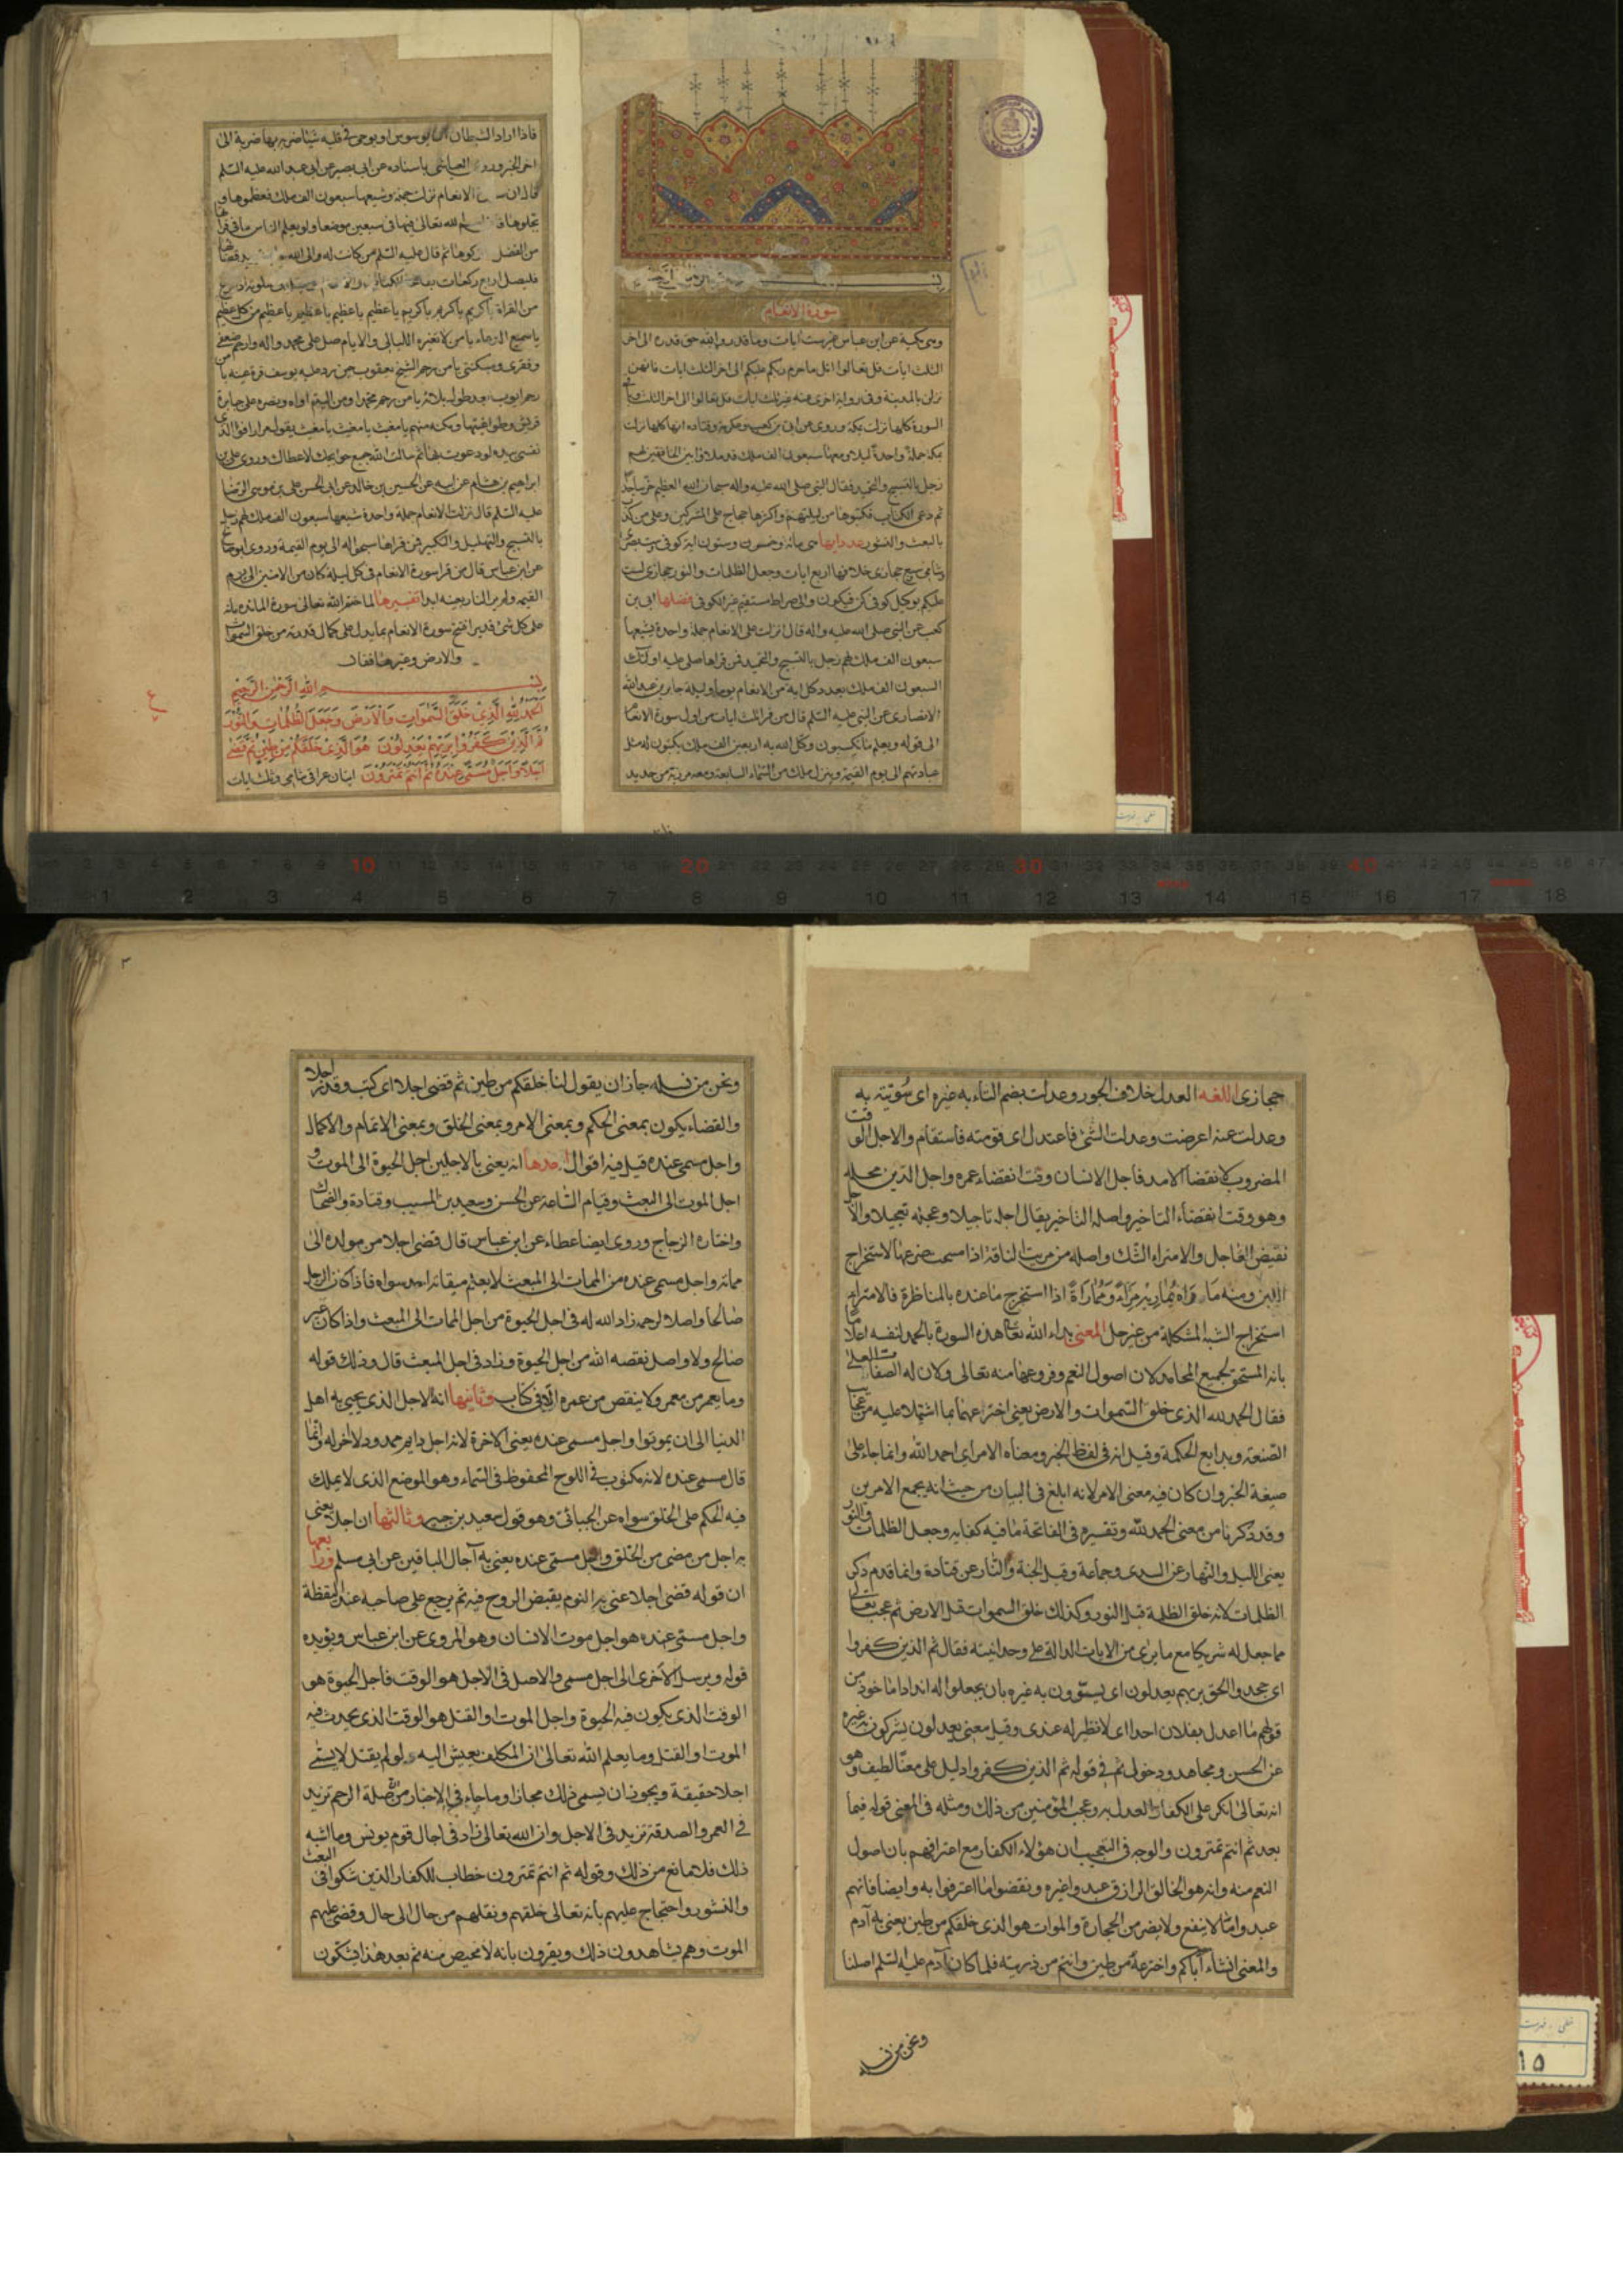 سورة الانعام
وهی مکیة عن ابن عباس غیر ست ایات وما قدروا الله حق قدره الی اخر
الثلث ایات قل تعالوا اتل ما حرم ربکم علیکم الی اخر الثلث ایات فانهن
نزلن بالمدینة وفی روایة اخری عنه غیر ثلث ایات قل تعالوا الی اخر الثلث وباقی
السورة کلها نزلت بمکة وروی عن ابی بن کعب وعکرمة وقتاده انها کلها نزلت
بمکة جملة واحدة لیلا ومعها سبعون الف ملک قد ملاوا بین الخافقین لهم
زجل بالتسبیح والتحمید فقال النبی صلی الله علیه واله سبحان الله العظیم وخر ساجدا
ثم دعی الکتاب فکتبوها من لیلتهم واکثرها حجاج علی المشرکین وعلی من کذب
بالبعث والنشور عدد ایها هی مائة وخمس وستون ایة کوفی ست بصری
وشامی سبع حجازی خلافها اربع ایات وجعل الظلمات والنور حجازی لست
علیکم بوکیل کوفی کن فیکون والی صراط مستقیم غیر الکوفی فضلها ابی بن
کعب عن النبی صلی الله علیه واله قال انزلت علی الانعام جملة واحدة یشیعها
سبعون الف ملک لهم زجل بالتسبیح والتحمید فمن قراها صلی علیه اولئک
السبعون الف ملک بعدد کل ایة من الانعام یوما ولیلة جابر بن عبد الله
الانصاری عن النبی علیه السلم قال من قرا ثلث ایات من اول سورة الانعام
الی قوله ویعلم ما تکسبون وکل الله به اربعین الف ملک یکتبون له مثل
عبادتهم الی یوم القیمة وینزل ملک من السماء السابعة ومعه مرزبة من حدید
فاذا اراد الشیطان ان یوسوس او یوحی فی قلبه شیئا ضربه بها ضربة الی
اخر الخبر وروی العیاشی باسناده عن ابی بصیر عن ابی عبد الله علیه السلم
قال ان الانعام نزلت جملة وشیعها سبعون الف ملک فعظموها و
بجلوها الله تعالی فیها فی سبعین موضعا ولو یعلم الناس ما فی قراءتها
من الفضل ترکوها ثم قال علیه السلم من کانت له والی الله
فلیصل اربع رکعات
من القراة یا کریم یا کریم یا کریم یا عظیم یا عظیم یا عظیم یا عظیم من کل عظیم
یا سمیع الدعاء یا من لا تغیره اللیالی والایام صل علی محمد واله وارحم ضعفی
وفقری ومسکنتی یا من رحم الشیخ یعقوب حین رد علیه یوسف قرة عینه یا من
رحم ایوب بعد طول بلائه یا من رحم محمدا ومن الیتم اواه ونصره علی جبابرة
قریش وطواغیتها وامکنه منهم یا مغیث یا مغیث یا مغیث یقوله مرارا فو الذی
نفسی بیده لو دعوت بها ثم سالت الله جمیع حوائجک لاعطاک وروی علی بن
ابراهیم بن هشام عن ابیه عن الحسین بن خالد عن ابی الحسن علی بن موسی الرضا
علیه السلم قال نزلت الانعام جملة واحدة شیعها سبعون الف ملک لهم زجل
بالتسبیح والتهلیل والتکبیر فمن قراها سبحوا له الی یوم القیمة وروی ابو صالح
عن ابن عباس قال من قرا سورة الانعام فی کل لیلة کان من الامنین الی یوم
القیمة ولم یر النار بعینه ابدا تفسیرها لما ختم الله تعالی سورة المائده بانه
علی کل شیء قدیر افتتح سورة الانعام بما یدل علی کمال قدرته من خلق السموات
والارض وغیرها فقال
بسم الله الرحمن الرحیم
الحمد لله الذی خلق السموات والارض وجعل الظلمات والنور
ثم الذین کفروا بربهم یعدلون هو الذی خلقکم من طین ثم قضی
اجلا واجل مسمی عنده ثم انتم تمترون ایتان عراقی شامی وثلث ایات
حجازی اللغه العدل خلاف الجور وعدلت بضم التاء به غیره ای سویته به
وعدلت عنه اعرضت وعدلت الشئ فاعتدل ای قومته فاستقام والاجل الوقت
المضروب لانقضا الامد فاجل الانسان وقت انقضاء عمره واجل الدین محله
وهو وقت انقضاء التاخیر واصله التاخیر یقال اجله تاجیلا وعجله تعجیلا والاجل
نقیض العاجل والامتراء الشک واصله من مریت الناقة اذا مسحت ضرعها لاستخراج
اللبن ومنه ماراه یماریه مراء ومماراة اذا استخرج ما عنده بالمناظرة فالامتراء
استخراج الشبه المشکلة من غیر حل المعنی بداء الله تعالی هذه السورة بالحمد لنفسه اعلاما
بانه المستحق لجمیع المحامد لان اصول النعم وفروعها منه تعالی ولان له الصفات العلی
فقال الحمد لله الذی خلق السموات والارض یعنی اخترعهما بما اشتملا علیه من عجائب
الصنعة وبدایع الحکمة وقیل انه فی لفظ الخبر ومعناه الامر ای احمد الله وانما جاء علی
صیغة الخبر وان کان فیه معنی الامر لانه ابلغ فی البیان من حیث انه یجمع الامرین
وقد ذکرنا من معنی الحمد لله وتفسیره فی الفاتحة ما فیه کفایه وجعل الظلمات والنور
یعنی اللیل والنهار عن السدی وجماعة وقیل الجنة والنار عن قتادة وانما قدم ذکر
الظلمات لانه خلق الظلمة قبل النور وکذلک خلق السموات قبل الارض ثم عجب تعالی
مما جعل له شریکا مع ما یری من الایات الدالة علی وحدانیته فقال ثم الذین کفروا
ای جحدوا الحق بربهم یعدلون ای یسوون به غیره بان یجعلوا له اندادا ماخوذ من
قولهم ما اعدل بفلان احدا ای لا نظیر له عندی وقیل معنی یعدلون یشرکون به غیره
عن الحسن ومجاهد ودخول ثم فی قوله ثم الذین کفروا دلیل علی معنی لطیف وهو
انه تعالی انکر علی الکفار العدل به وعجب المؤمنین من ذلک ومثله فی المعنی قوله فیما
بعد ثم انتم تمترون والوجه فی التعجیب ان هؤلاء الکفار مع اعترافهم بان اصول
النعم منه وانه هو الخالق الرازق عبدوا غیره ونقضوا ما اعترفوا به وایضا فانهم
عبدوا ما لا ینفع ولا یضر من الحجارة والموات هو الذی خلقکم من طین یعنی به آدم
والمعنی انشاء آباکم واخترعه من طین وانتم من ذریته فلما کان آدم علیه السلم اصلنا
ونحن من نسله
ونحن من نسله جاز ان یقول لنا خلقکم من طین ثم قضی اجلا ای کتب وقدر اجلا
والقضاء یکون بمعنی الحکم وبمعنی الامر وبمعنی الخلق وبمعنی الاتمام والاکمال
واجل مسمی عنده قیل فیه اقوال احدها انه یعنی بالاجلین اجل الحیوة الی الموت و
اجل الموت الی البعث وقیام الساعة عن الحسن وسعید بن المسیب وقتادة والضحاک
واختاره الزجاج وروی ایضا عطاء عن ابن عباس قال قضی اجلا من مولده الی
مماته واجل مسمی عنده من الممات الی المبعث لا یعلم میقاته احد سواه فاذا کان الرجل
صالحا واصلا لرحمه زاد الله له فی اجل الحیوة من اجل الممات الی المبعث واذا کان غیر
صالح ولا واصل نقصه الله من اجل الحیوة وزاد فی اجل المبعث قال وذلک قوله
وما یعمر من معمر ولا ینقص من عمره الا فی کتاب وثانیها انه الاجل الذی یحیی به اهل
الدنیا الی ان یموتوا واجل مسمی عنده یعنی الاخرة لانه اجل دایم ممدود لا اخر له وانما
قال مسمی عنده لانه مکتوب فی اللوح المحفوظ فی السماء وهو الموضع الذی لا یملک
فیه الحکم علی الخلق سواه عن الجبائی وهو قول سعید بن جبیر وثالثها ان اجلا یعنی
به اجل من مضی من الخلق واجل مسمی عنده یعنی به آجال الباقین عن ابی مسلم ورابعها
ان قوله قضی اجلا عنی به النوم یقبض الروح فیه ثم یرجع علی صاحبه عند الیقظة
واجل مسمی عنده هو اجل موت الانسان وهو المروی عن ابن عباس ویؤیده
قوله ویرسل الاخری الی اجل مسمی والاصل فی الاجل هو الوقت فاجل الحیوة هو
الوقت الذی یکون فیه الحیوة واجل الموت او القتل هو الوقت الذی یحدث فیه
الموت او القتل وما یعلم الله تعالی ان المکلف یعیش الیه لو لم یقتل لا یسمی
اجلا حقیقة ویجوز ان یسمی ذلک مجازا وما جاء فی الاخبار من ان صلة الرحم تزید
فی العمر والصدقة تزید فی الاجل وان الله تعالی زاد فی اجال قوم یونس وما اشبه
ذلک فلا مانع من ذلک وقوله ثم انتم تمترون خطاب للکفار الذین شکوا فی البعث
والنشور واحتجاج علیهم بانه تعالی خلقهم ونقلهم من حال الی حال وقضی علیهم
الموت وهم یشاهدون ذلک ویقرون بانه لا محیص منه ثم بعد هذا یشکون